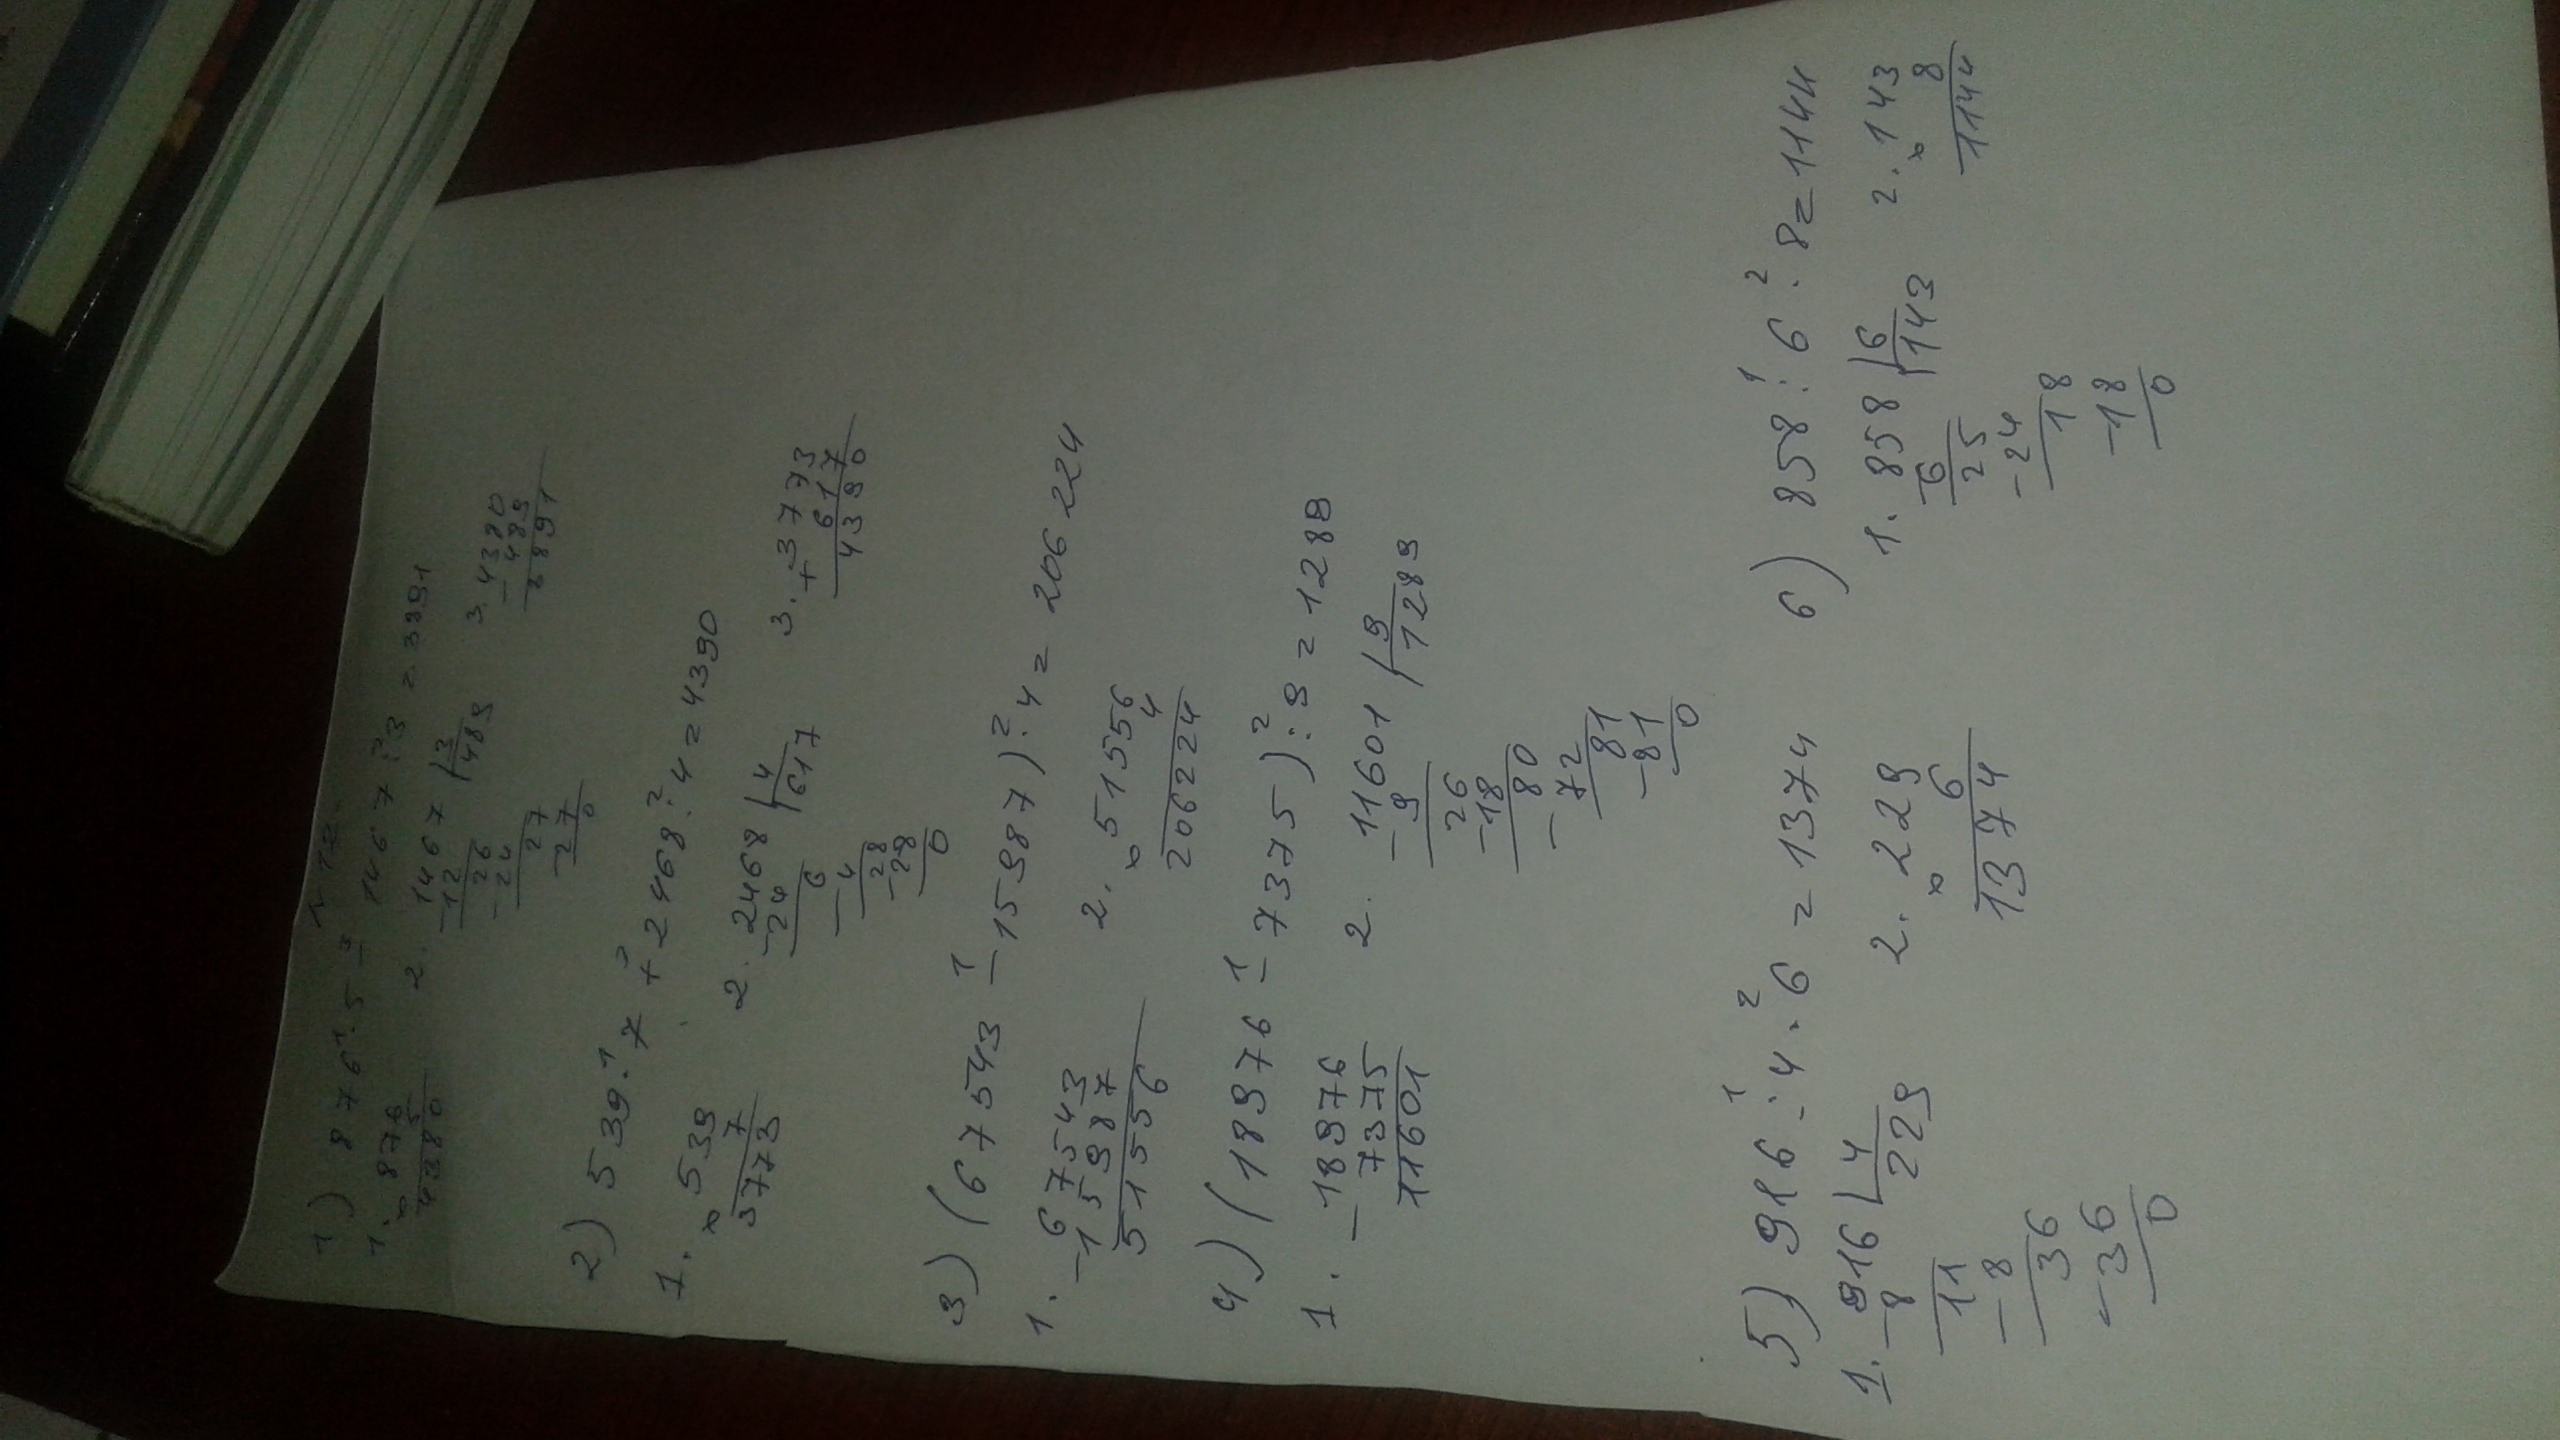 1) 876 · 5 - 1467 : 3 = 3891
1. × 876 2. - 1467 | 3 3. - 4380
5 12 489 489
4380 26 3891
- 24
27
- 27
0
2) 539 · 7 + 2468 : 4 = 4390
1. × 539 2. - 2468 | 4 3. + 3773
7 24 617 617
3773 6 4390
- 4
28
- 28
0
3) (67543 - 15987) · 4 = 206224
1. 67543 2. × 51556
- 15987 4
51556 206224
4) (18976 - 7375) : 9 = 1289
1. - 18976 2. - 11601 | 9
7375 9 1289
11601 26
- 18
80
- 72
81
- 81
0
5) 916 : 4 · 6 = 1374 6) 858 : 6 · 8 = 1144
1. - 916 | 4 2. × 229 1. 858 | 6 2. × 143
8 229 6 6 143 8
11 1374 25 1144
- 8 - 24
36 18
- 36 - 18
0 0